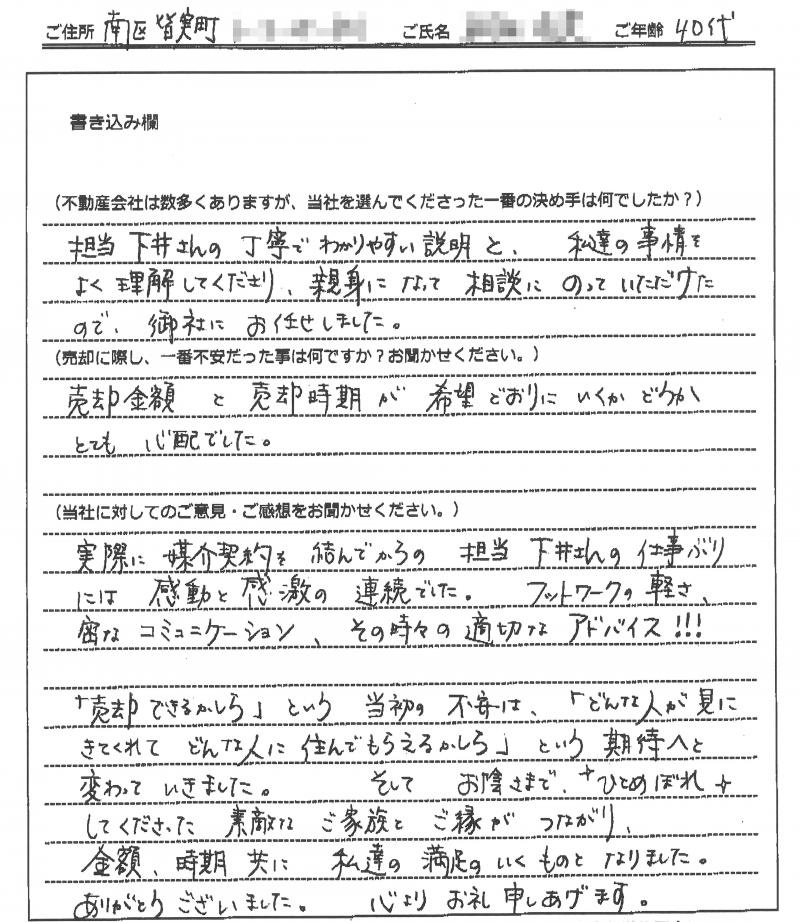 ご住所 南区皆実町 ご氏名 ご年齢 40代
書き込み欄
(不動産会社は数多くありますが、当社を選んでくださった一番の決め手は何でしたか?)
担当 下井さんの 丁寧で わかりやすい 説明 と、 私達の事情を
よく 理解してくださり、親身に なって 相談に のって いただけた
ので、御社に お任せしました。
(売却に際し、一番不安だった事は何ですか?お聞かせください。)
売却金額 と 売却時期が 希望どおりに いくか どうか
とても 心配でした。
(当社に対してのご意見・ご感想をお聞かせください。)
実際に 媒介契約を 結んでからの 担当 下井さんの 仕事ぶり
には 感動と感激の 連続でした。 フットワークの軽さ、
密な コミュニケーション、その時々の 適切な アドバイス!!!
「売却できるかしら」という 当初の 不安は、「どんな人が見に
きてくれて どんな人に 住んでもらえるかしら」という 期待へと
変わって いきました。 そして お陰さまで、+ひとめぼれ+
してくださった 素敵な ご家族と ご縁が つながり、
金額、時期 共に 私達の 満足の いくものと なりました。
ありがとうございました。 心より お礼 申しあげます。